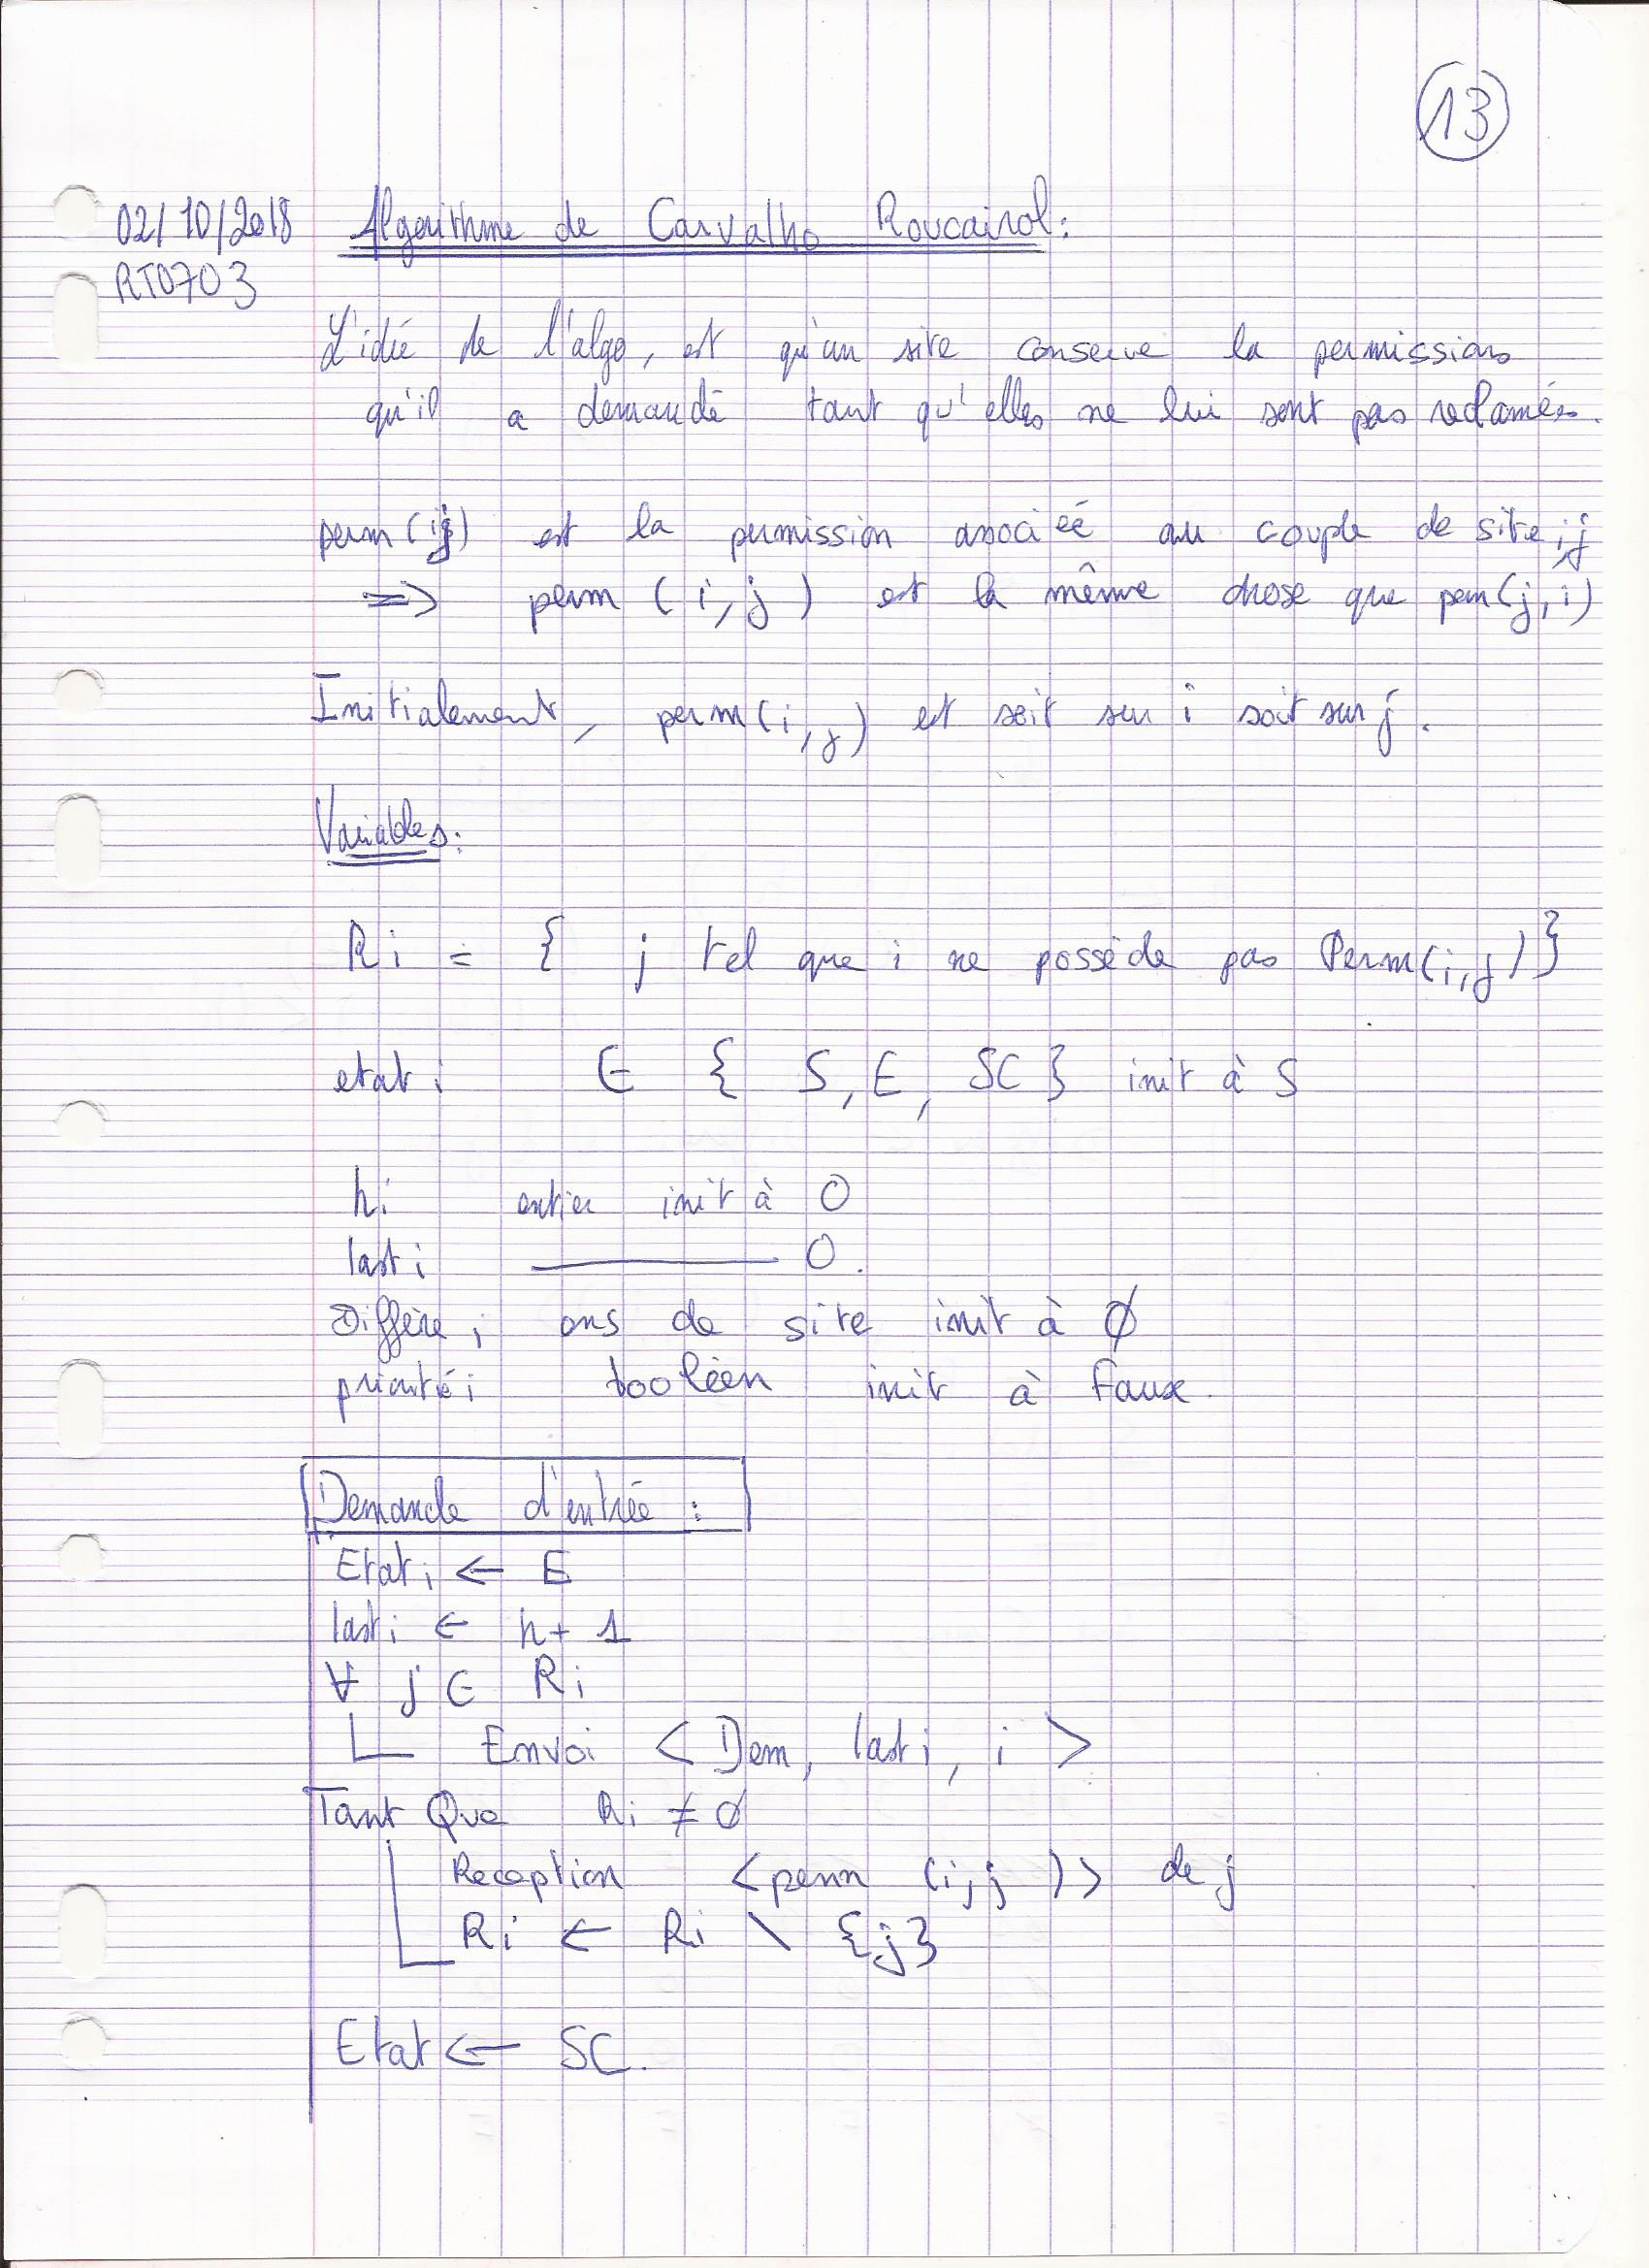 13
02/10/2018 Algorithme de Carvalho Roucairol:
RT0703
L'idée de l'algo, est qu'un site conserve la permissions
qu'il a demandé tant qu'elles ne lui sont pas reclamées.
perm(ij) est la permission associéé au couple de site i,j
=> perm (i,j) est la même chose que perm(j,i)
Initialement, perm(i,j) est soit sur i soit sur j.
Variables:
Ri = { j tel que i ne posséde pas Perm(i,j)}
etat i ∈ {S, E, SC} init à S
hi entier init à 0
last i ——— 0.
Differe i ens de site init à ∅
priorité i booléen init à Faux.
Demande d'entrée :
Etat i ← E
last i ← h+1
∀ j ∈ Ri
Envoi <Dem, last i, i>
Tant Que Ri ≠ ∅
Reception <perm (i,j)> de j
Ri ← Ri \ {j}
Etat ← SC.